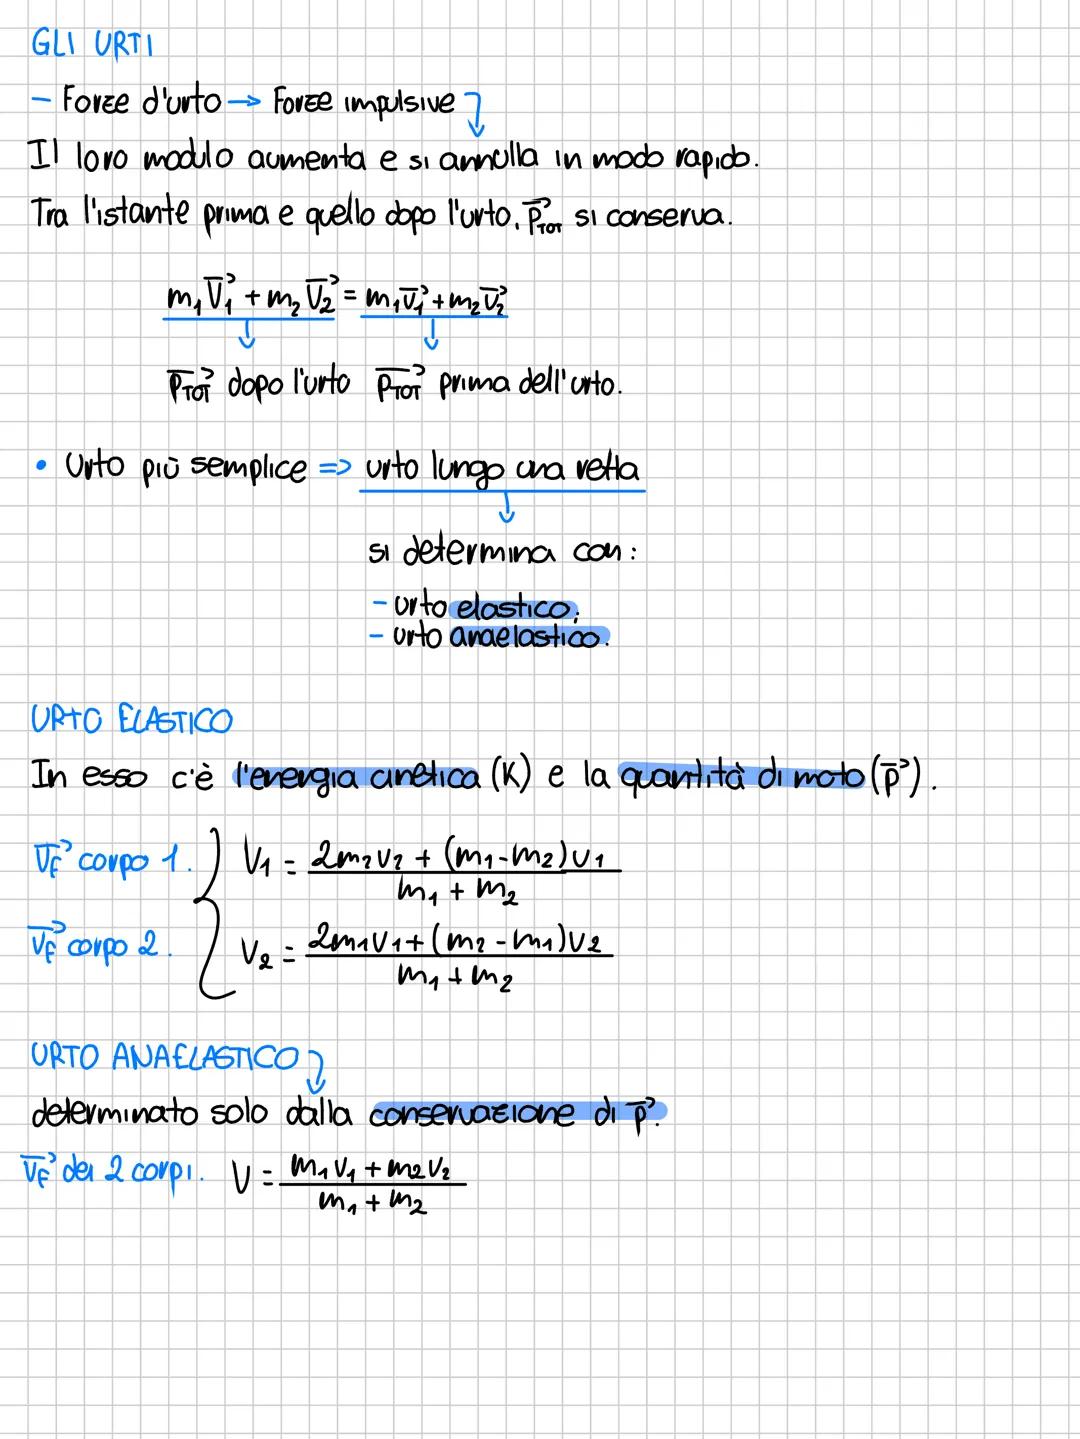 GLI URTI
- Forze d'urto → Forze impulsive
Il loro modulo aumenta e si annulla in modo rapido.
Tra l'istante prima e quello dopo l'urto, p⃗TOT si conserva.
m₁V⃗₁ + m₂V⃗₂ = m₁v⃗₁ + m₂v⃗₂
p⃗TOT dopo l'urto p⃗TOT prima dell'urto.
• Urto più semplice => urto lungo una retta
si determina con:
- urto elastico;
- urto anaelastico.
URTO ELASTICO
In esso c'è l'energia cinetica (K) e la quantità di moto (p⃗).
v⃗F corpo 1. V₁ = 2m₂v₂ + (m₁-m₂)v₁ / m₁ + m₂
v⃗F corpo 2. V₂ = 2m₁v₁ + (m₂-m₁)v₂ / m₁ + m₂
URTO ANAELASTICO
determinato solo dalla conservazione di p⃗.
v⃗F dei 2 corpi. V = m₁v₁ + m₂v₂ / m₁ + m₂